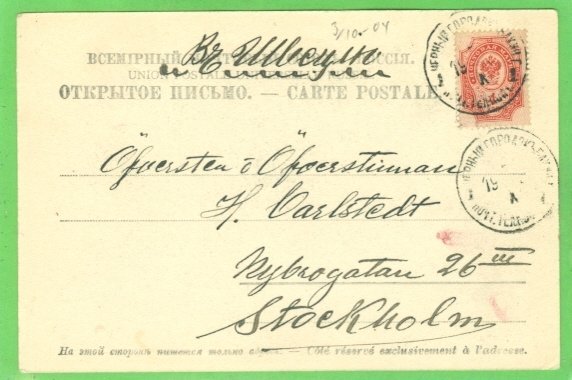 3/10-04
ВСЕМІРНЫЙ РОССІЯ.
Въ Швецію
UNION POSTALE
ОТКРЫТОЕ ПИСЬМО. — CARTE POSTALE.
ЧЕРНЫЙ ГОРОДОКЪ
19 X
1 1
Öfversten o Öfverstinnan
H. Carlstedt
ЧЕРНЫЙ ГОРОДОКЪ
19 X
Nybrogatan 26 III
Stockholm
На этой сторонѣ пишется только адресъ. — Côté réservé exclusivement à l'adresse.